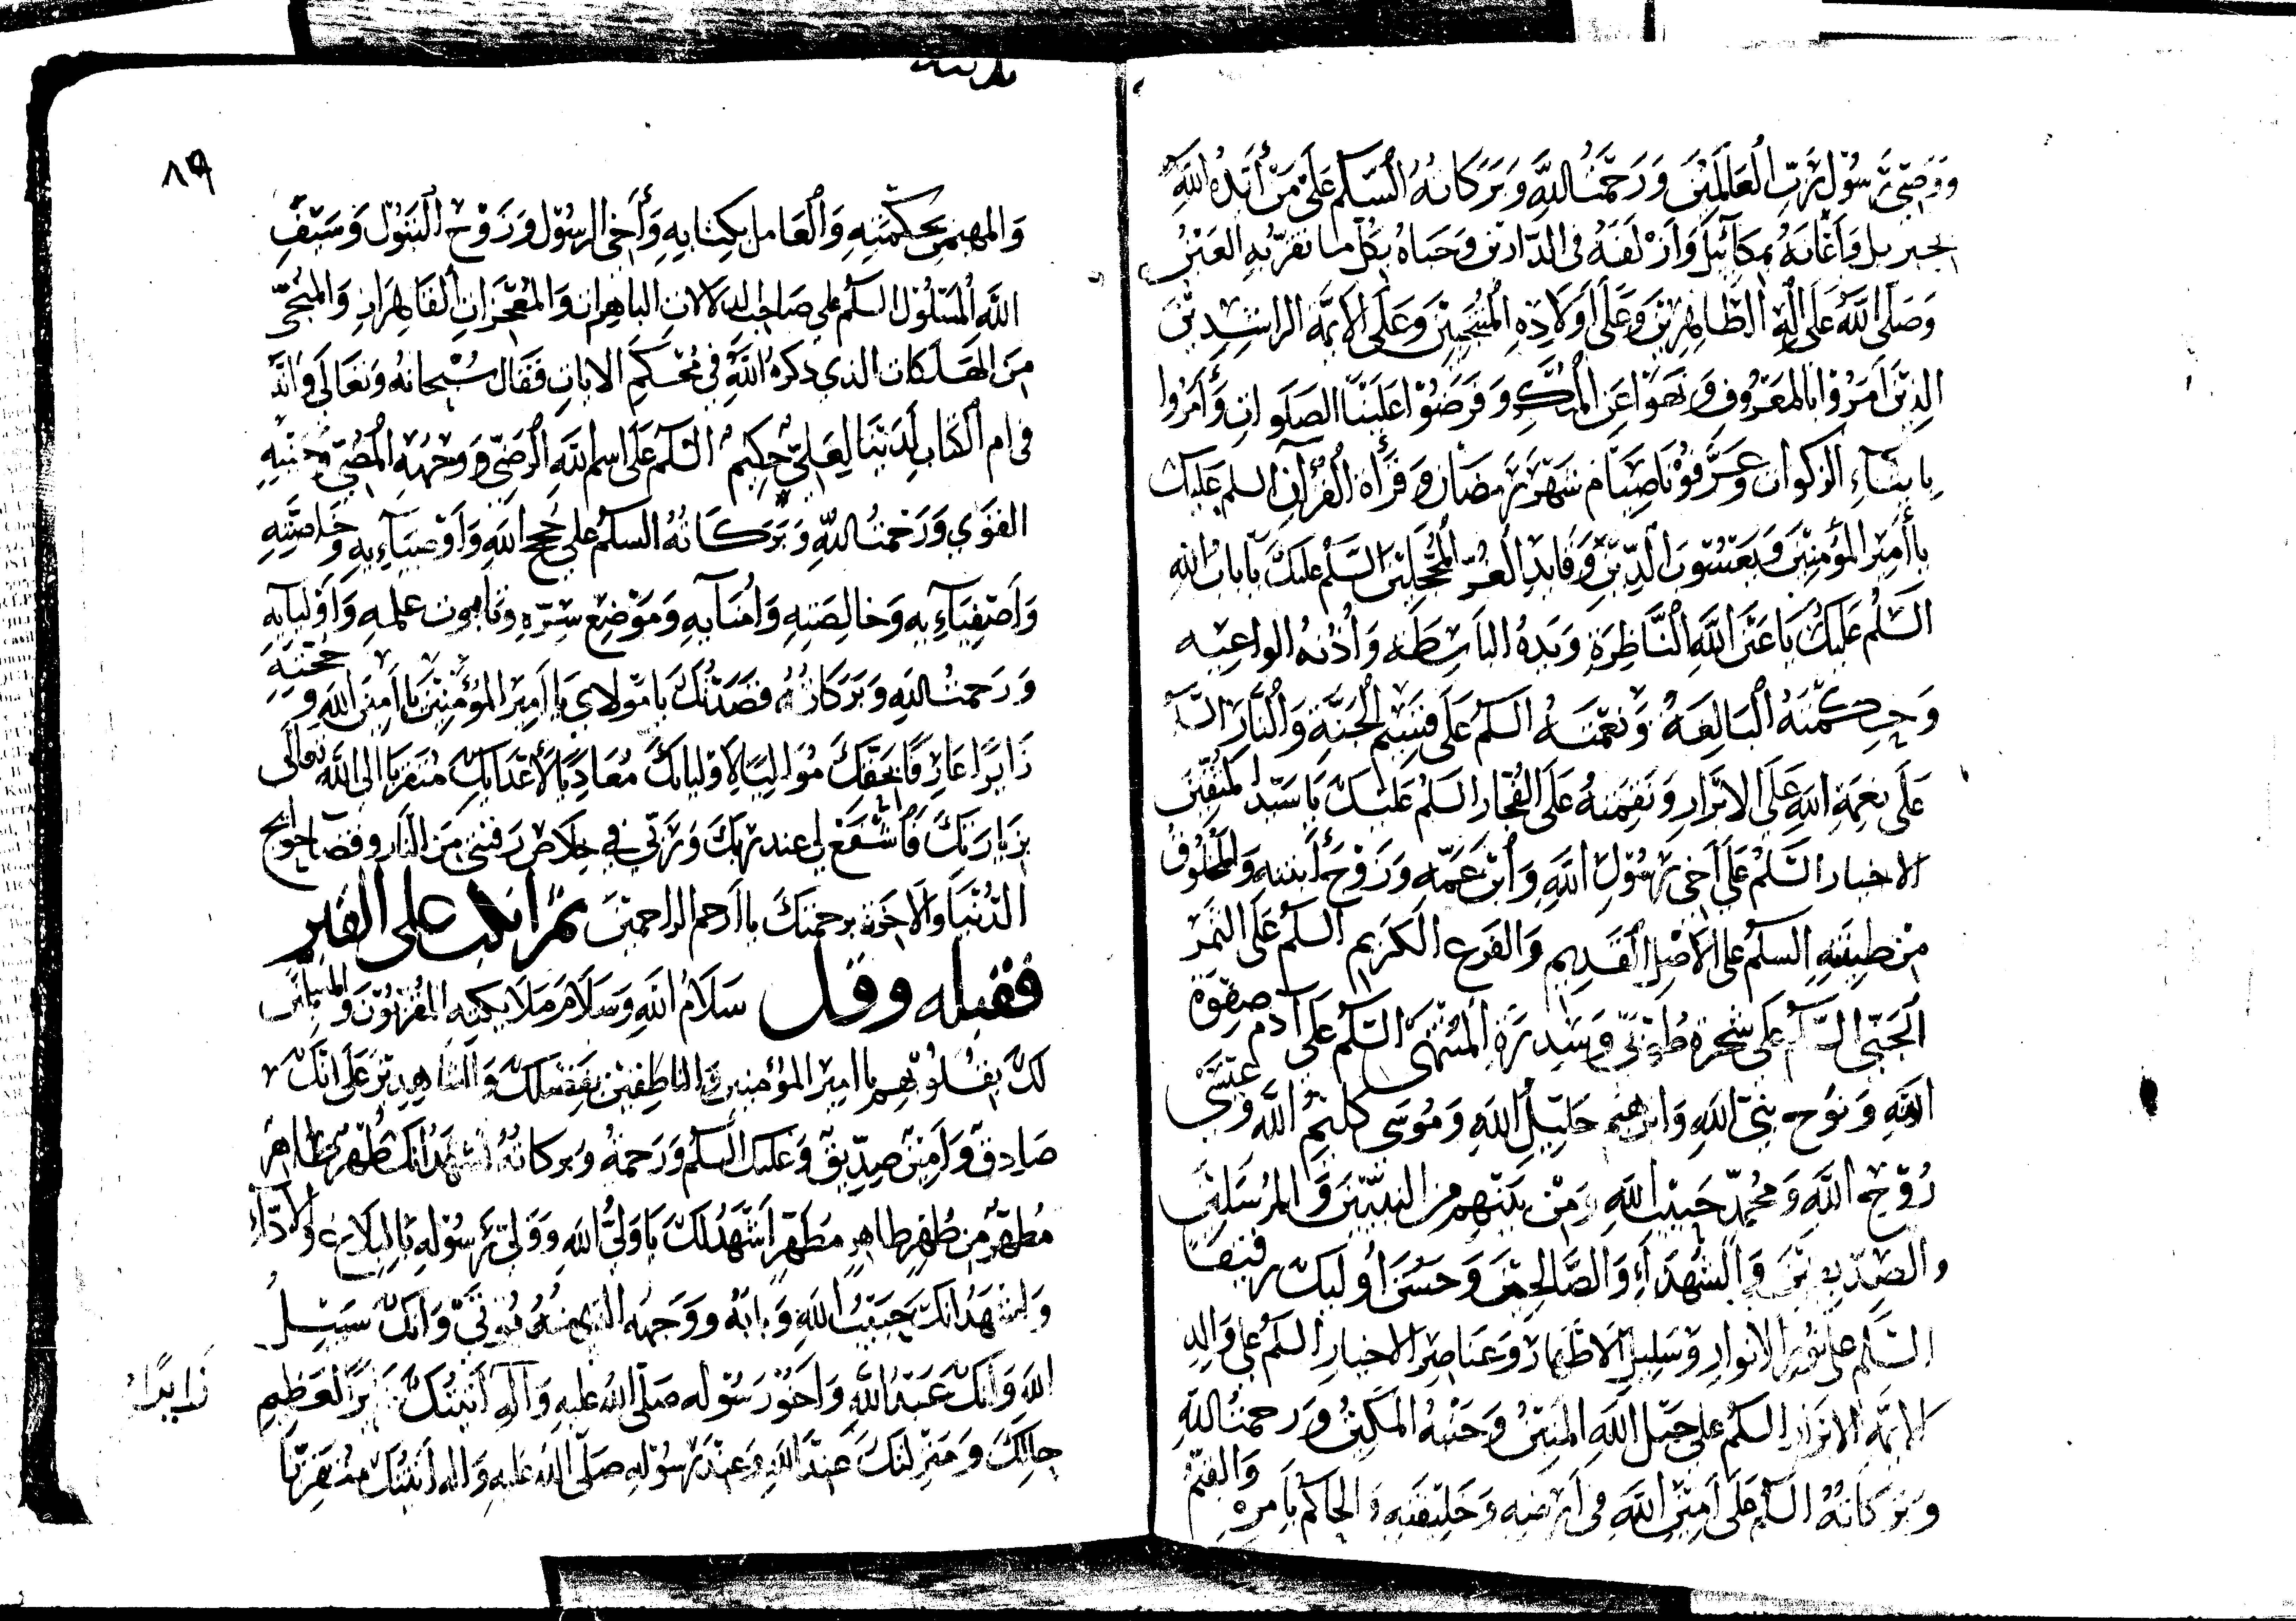 ووصي رسول رب العالمين ورحمت الله وبركاته السلم على من أيده الله
بجبريل وأعانه بميكائيل وأزلفه في الدارين وحباه بكل ما تقر به العين
وصلى الله على آله الطاهرين وعلى أولاده المنتجبين وعلى الأئمة الراشدين
الذين أمروا بالمعروف ونهوا عن المنكر وفرضوا علينا الصلوات وأمروا
بايتاء الزكوات وعرفونا صيام شهر رمضان وقراة القرآن السلم عليك
يا أمير المؤمنين ويعسوب الدين وقايد الغر المحجلين السلم عليك يا باب الله
السلم عليك يا عين الله الناظرة ويده الباسطة وأذنه الواعيه
وحكمته البالغة ونعمته السلم على قسيم الجنة والنار السلم
على نعمة الله على الابرار ونقمته على الفجار السلم عليك يا سيد المتقين
الاخيار السلم على أخي رسول الله وابن عمه وزوج أبنته والمخلوق
من طينته السلم على الأصل القديم والفرع الكريم السلم على الثمر
الجني السلم على شجرة طوبى وسدرة المنتهى السلم على آدم صفوة
الله ونوح نبي الله وابرهيم خليل الله وموسى كليم الله وعيسى
روح الله ومحمد حبيب الله ومن بينهم من النبيين والمرسلين
والصديقين والشهداء والصالحين وحسن أوليك رفيقا
السلم على نور الانوار وسليل الاطهار وعناصر الاخيار السلم على والد
الايمة الابرار السلم على حبل الله المتين وجنبه المكين ورحمت الله
وبركاته السلم على أمين الله في أرضه وخليفته والحاكم بأمره والقيم
٨٩
والمهيمن بحكمته والعامل بكتابه وأخي الرسول وزوج البتول وسيف
الله المسلول السلم على صاحب الدلالات الباهرات والمعجزات القاهرات والمنجي
من الهلكات الذي ذكره الله في محكم الايات فقال سبحانه وتعالى وانه
في ام الكتاب لدينا لعلي حكيم السلم على اسم الله الرضي ووجهه المضي وجنبه
القوي ورحمت الله وبركاته السلم على حجج الله وأوصيآءيه وخاصته
وأصفيآءيه وخالصته وأمنآيه وموضع سره وتابوت علمه وأوليآيه
ورحمت الله وبركاته قصدتك يا مولاي يا أمير المؤمنين يا أمين الله وحجته
زايرا عارفا بحقك مواليا لأوليايك معاديا لأعدايك متقربا الى الله تعالى
بزيارتك فأشفع لي عند ربك وربي في خلاص رقبتي من النار وقضا حوايج
الدنيا والآخرة برحمتك يا أرحم الراحمين ثم انكب على القبر
فقبله وقل سلام الله وسلام ملايكته المقربون والمسلمين
لك بقلوبهم يا امير المؤمنين والناطقين بفضلك والشاهدين على انك
صادق وأمين صديق وعليك السلم ورحمة وبركاته أشهد انك طهر طاهر
مطهر من طهر طاهر مطهر أشهد لك يا ولي الله وولي رسوله بالبلاغ والأداء
وأشهد انك حبيب الله وبابه ووجهه الذي منه يوتى وأنك سبيل
الله وأنك عبد الله وأخو رسوله صلى الله عليه وآله أتيتك زايرا لعظيم
حالك ومنزلتك عند الله وعند رسوله صلى الله عليه واله أتيتك متقربا